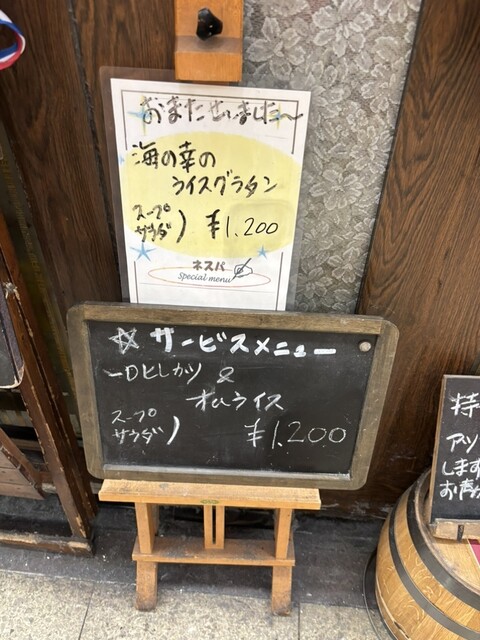 おまたせしました〜
海の幸の
ライスグラタン
スープ
サラダ) ¥1,200
ネスパ
Special menu
☆サービスメニュー
一口ヒレカツ &
オムライス
スープ
サラダ) ¥1,200
持
アツ
します
お声